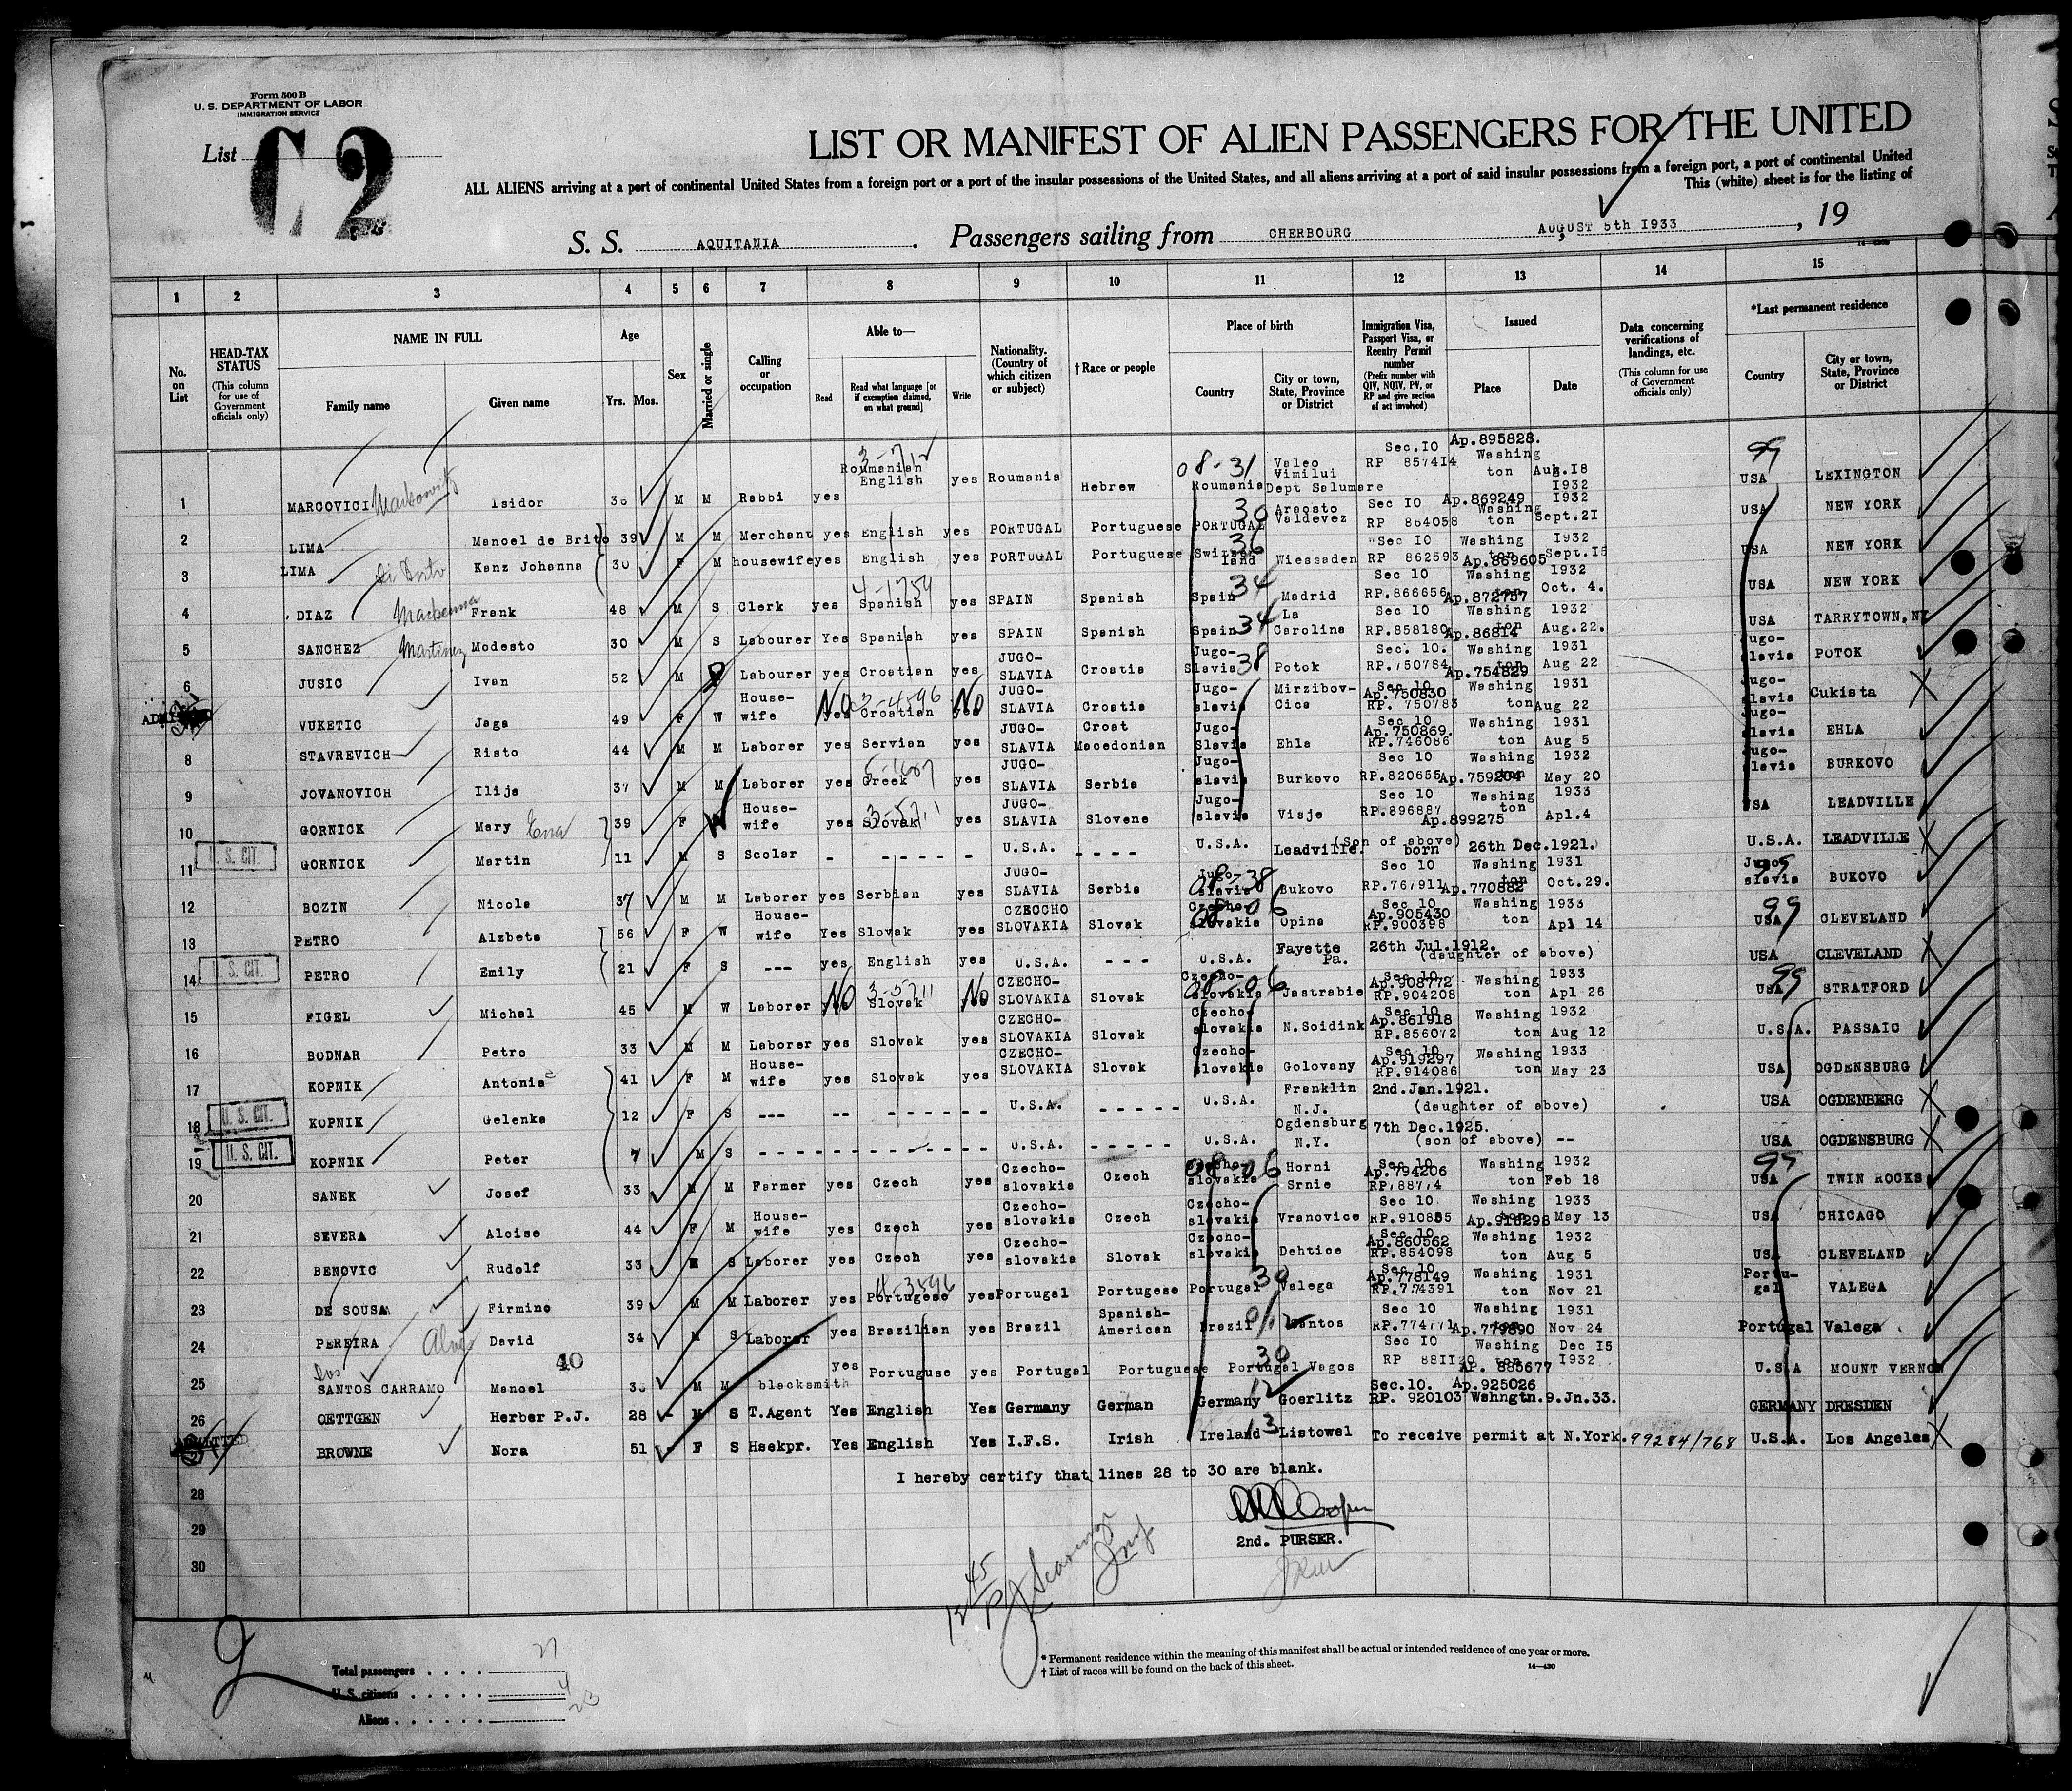 Form 500 B
U. S. DEPARTMENT OF LABOR
IMMIGRATION SERVICE
List C2
LIST OR MANIFEST OF ALIEN PASSENGERS FOR THE UNITED
ALL ALIENS arriving at a port of continental United States from a foreign port or a port of the insular possessions of the United States, and all aliens arriving at a port of said insular possessions from a foreign port, a port of continental United
This (white) sheet is for the listing of
S. S. AQUITANIA. Passengers sailing from CHERBOURG AUGUST 5th 1933, 19
1 2 3 4 5 6 7 8 9 10 11 12 13 14 15
No. on List
HEAD-TAX STATUS (This column for use of Government officials only)
NAME IN FULL Family name Given name
Age Yrs. Mos.
Sex
Married or single
Calling or occupation
Able to— Read Read what language [or if exemption claimed, on what ground] Write
Nationality. (Country of which citizen or subject)
†Race or people
Place of birth Country City or town, State, Province or District
Immigration Visa, Passport Visa, or Reentry Permit number (Prefix number with QIV, NQIV, PV, or RP and give section of act involved)
Issued Place Date
Data concerning verifications of landings, etc. (This column for use of Government officials only)
*Last permanent residence Country City or town, State, Province or District
1 MARCOVICI Markowitz Isidor M M Rabbi yes Roumanian English yes Roumania Hebrew 08-31 Roumania Valeo Vimilui Dept Salumare Sec.I0 RP 857414 Ap.895828. Washing ton Aug.I8 I932 99 USA LEXINGTON
2 LIMA Manoel de Brito 39 M M Merchant yes English yes PORTUGAL Portuguese 30 PORTUGAL Araosto Valdevez Sec I0 RP 864058 Ap.869249 Washing ton I932 Sept.2I USA NEW YORK
3 LIMA Di Brito Kanz Johanna 30 F M housewife yes English yes PORTUGAL Portuguese 36 Switzer land Wiessaden "Sec I0 RP 862593 Ap.869605 Washing ton I932 Sept.I5 USA NEW YORK
4 DIAZ Frank 48 M S Clerk yes 4-1754 Spanish yes SPAIN Spanish 34 Spain Madrid Sec 10 RP.866656 Ap.872757 Washing ton 1932 Oct. 4. USA NEW YORK
5 SANCHEZ Martinez Modesto 30 M S Labourer Yes Spanish yes SPAIN Spanish Spain 34 La Carolina Sec 10 RP.858180 Ap.86814 Washing ton 1932 Aug.22. USA TARRYTOWN.NY
6 JUSIC Ivan 52 M Labourer yes Croatian yes JUGO-SLAVIA Croatia Jugo-Slavia 38 Potok Sec. 10. RP.750784 Ap.754829 Washing ton 1931 Aug 22 Jugo-slavia POTOK
VUKETIC Jaga 49 F W House-wife No yes 2-4596 Croatian No yes JUGO-SLAVIA Croatia Jugo-slavia Mirzibov-Cica Sec 10 Ap.750830 RP. 750783 Washing ton 1931 Aug 22 Jugo-slavia Cukista
8 STAVREVICH Risto 44 M M Laborer yes Servian yes JUGO-SLAVIA Croat Macedonian Jugo-Slavia Ehla Sec 10 Ap.750869. RP.746086 Washing ton 1931 Aug 5 Jugo-slavia EHLA
9 JOVANOVICH Ilija 37 M M Laborer yes Greek yes JUGO-SLAVIA Serbia Jugo-slavia Burkovo Sec 10 RP.820655 Ap.759204 Washing ton 1932 May 20 Jugo-slavia BURKOVO
10 GORNICK Mary 39 F House-wife yes 3-5711 Slovak yes JUGO-SLAVIA Slovene Jugo-slavia Visje Sec 10 RP.896887 Ap.899275 Washing ton 1933 Apl.4 USA LEADVILLE
11 U. S. CIT. GORNICK Martin 11 M S Scolar - - - - - - - U.S.A. - - - - U.S.A. Leadville. (Son of above) born 26th Dec.1921. U.S.A. LEADVILLE
12 BOZIN Nicola 37 M M Laborer yes Serbian yes JUGO-SLAVIA Serbia Jugo-slavia 08-38 Bukovo Sec 10 RP.767911 Ap.770882 Washing ton 1931 Oct.29. Jugo-slavia 99 BUKOVO
13 PETRO Alzbeta 56 F W House-wife Yes Slovak yes CZECCHO SLOVAKIA Slovak Czecho-slovakia 08-06 Opina Sec 10 Ap.905430 RP.900398 Washing ton 1933 Apl 14 99 USA CLEVELAND
14 U. S. CIT. PETRO Emily 21 F S --- yes English yes U.S.A. - - - U.S.A. Fayette Pa. 26th Jul.1912. (daughter of above) USA CLEVELAND
15 FIGEL Michal 45 M W Laborer No yes 3-5711 Slovak No yes CZECHO-SLOVAKIA Slovak Czecho-slovakia 08-06 Jastrabie Sec 10 Ap.908772 RP.904208 Washing ton 1933 Apl 26 99 USA STRATFORD
16 BODNAR Petro 33 M M Laborer yes Slovak yes CZECHO-SLOVAKIA Slovak Czecho-slovakia N.Soidink Sec 10 Ap.861918 RP.856072 Washing ton 1932 Aug 12 U.S.A. PASSAIC
17 KOPNIK Antonia 41 F M House-wife yes Slovak yes CZECHO-SLOVAKIA Slovak Czecho-slovakia Golovany Sec 10 Ap.919297 RP.914086 Washing ton 1933 May 23 USA OGDENSBURG
18 U. S. CIT. KOPNIK Gelenka 12 F S --- -- - - - - - - U.S.A. - - - - - U.S.A. Franklin N.J. 2nd.Jan.1921. (daughter of above) USA OGDENBERG
19 U. S. CIT. KOPNIK Peter 7 M S - - - - - - - - - - - - - U.S.A. - - - - - U.S.A. Ogdensburg N.Y. 7th Dec.1925. (son of above) -- USA OGDENSBURG
20 SANEK Josef 33 M M Farmer yes Czech yes Czecho-slovakia Czech Czecho-slovakia 08-06 Horni Srnie Sec 10 Ap.794206 Washing ton 1932 Feb 18 99 USA TWIN ROCKS
21 SEVERA Aloise 44 F M House-wife yes Czech yes Czecho-slovakia Czech Czecho-slovakia Vranovice Sec 10. RP.910885 Ap.916298 Washing ton 1933 May 13 USA CHICAGO
22 BENOVIC Rudolf 33 M S Laborer yes Czech yes Czecho-slovakia Slovak Czecho-slovakia Dehtice Sec 10 Ap.860562 RP.854098 Washing ton 1932 Aug 5 USA CLEVELAND
23 DE SOUSA Firmino 39 M M Laborer yes Portugese yes Portugal Portugese Portugal 30 Valega Sec 10 Ap.778149 RP.774391 Washing ton 1931 Nov 21 Portu-gal VALEGA
24 PEREIRA David 34 M S Laborer yes Brazilian yes Brazil Spanish-American Brazil Santos Sec 10 RP.774771 Ap.779890 Washing ton 1931 Nov 24 Portugal Valega
25 Dos SANTOS CARRAMO Manoel 40 M M blacksmith yes Portuguse yes Portugal Portuguese 30 Portugal Vagos Sec I0 RP 88II20 Ap. 885677 Washing ton Dec I5 I932. U.S.A MOUNT VERNON
26 OETTGEN Herber P.J. 28 M S T.Agent Yes English Yes Germany German Germany 12 Goerlitz Sec.10. Ap.925026 RP. 920103 Wahngtn.9.Jn.33. GERMANY DRESDEN
BROWNE Nora 51 F S Hsekpr. Yes English Yes I.F.S. Irish Ireland 13 Listowel To receive permit at N.York. 99284/768 U.S.A. Los Angeles
I hereby certify that lines 28 to 30 are blank.
28
29
30
2nd. PURSER.
Total passengers . . . . 27
U. S. citizens . . . . . 4
Aliens . . . . . . 23
* Permanent residence within the meaning of this manifest shall be actual or intended residence of one year or more.
† List of races will be found on the back of this sheet.
14—430